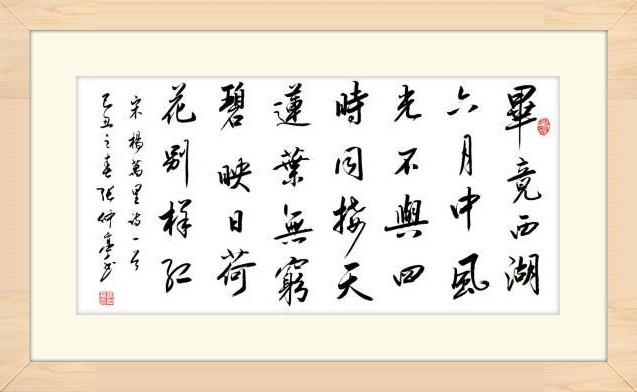 畢竟西湖
六月中風
光不與四
時同接天
蓮葉無窮
碧映日荷
花别樣紅
宋楊萬里詩一首
己丑之春張仲亭書